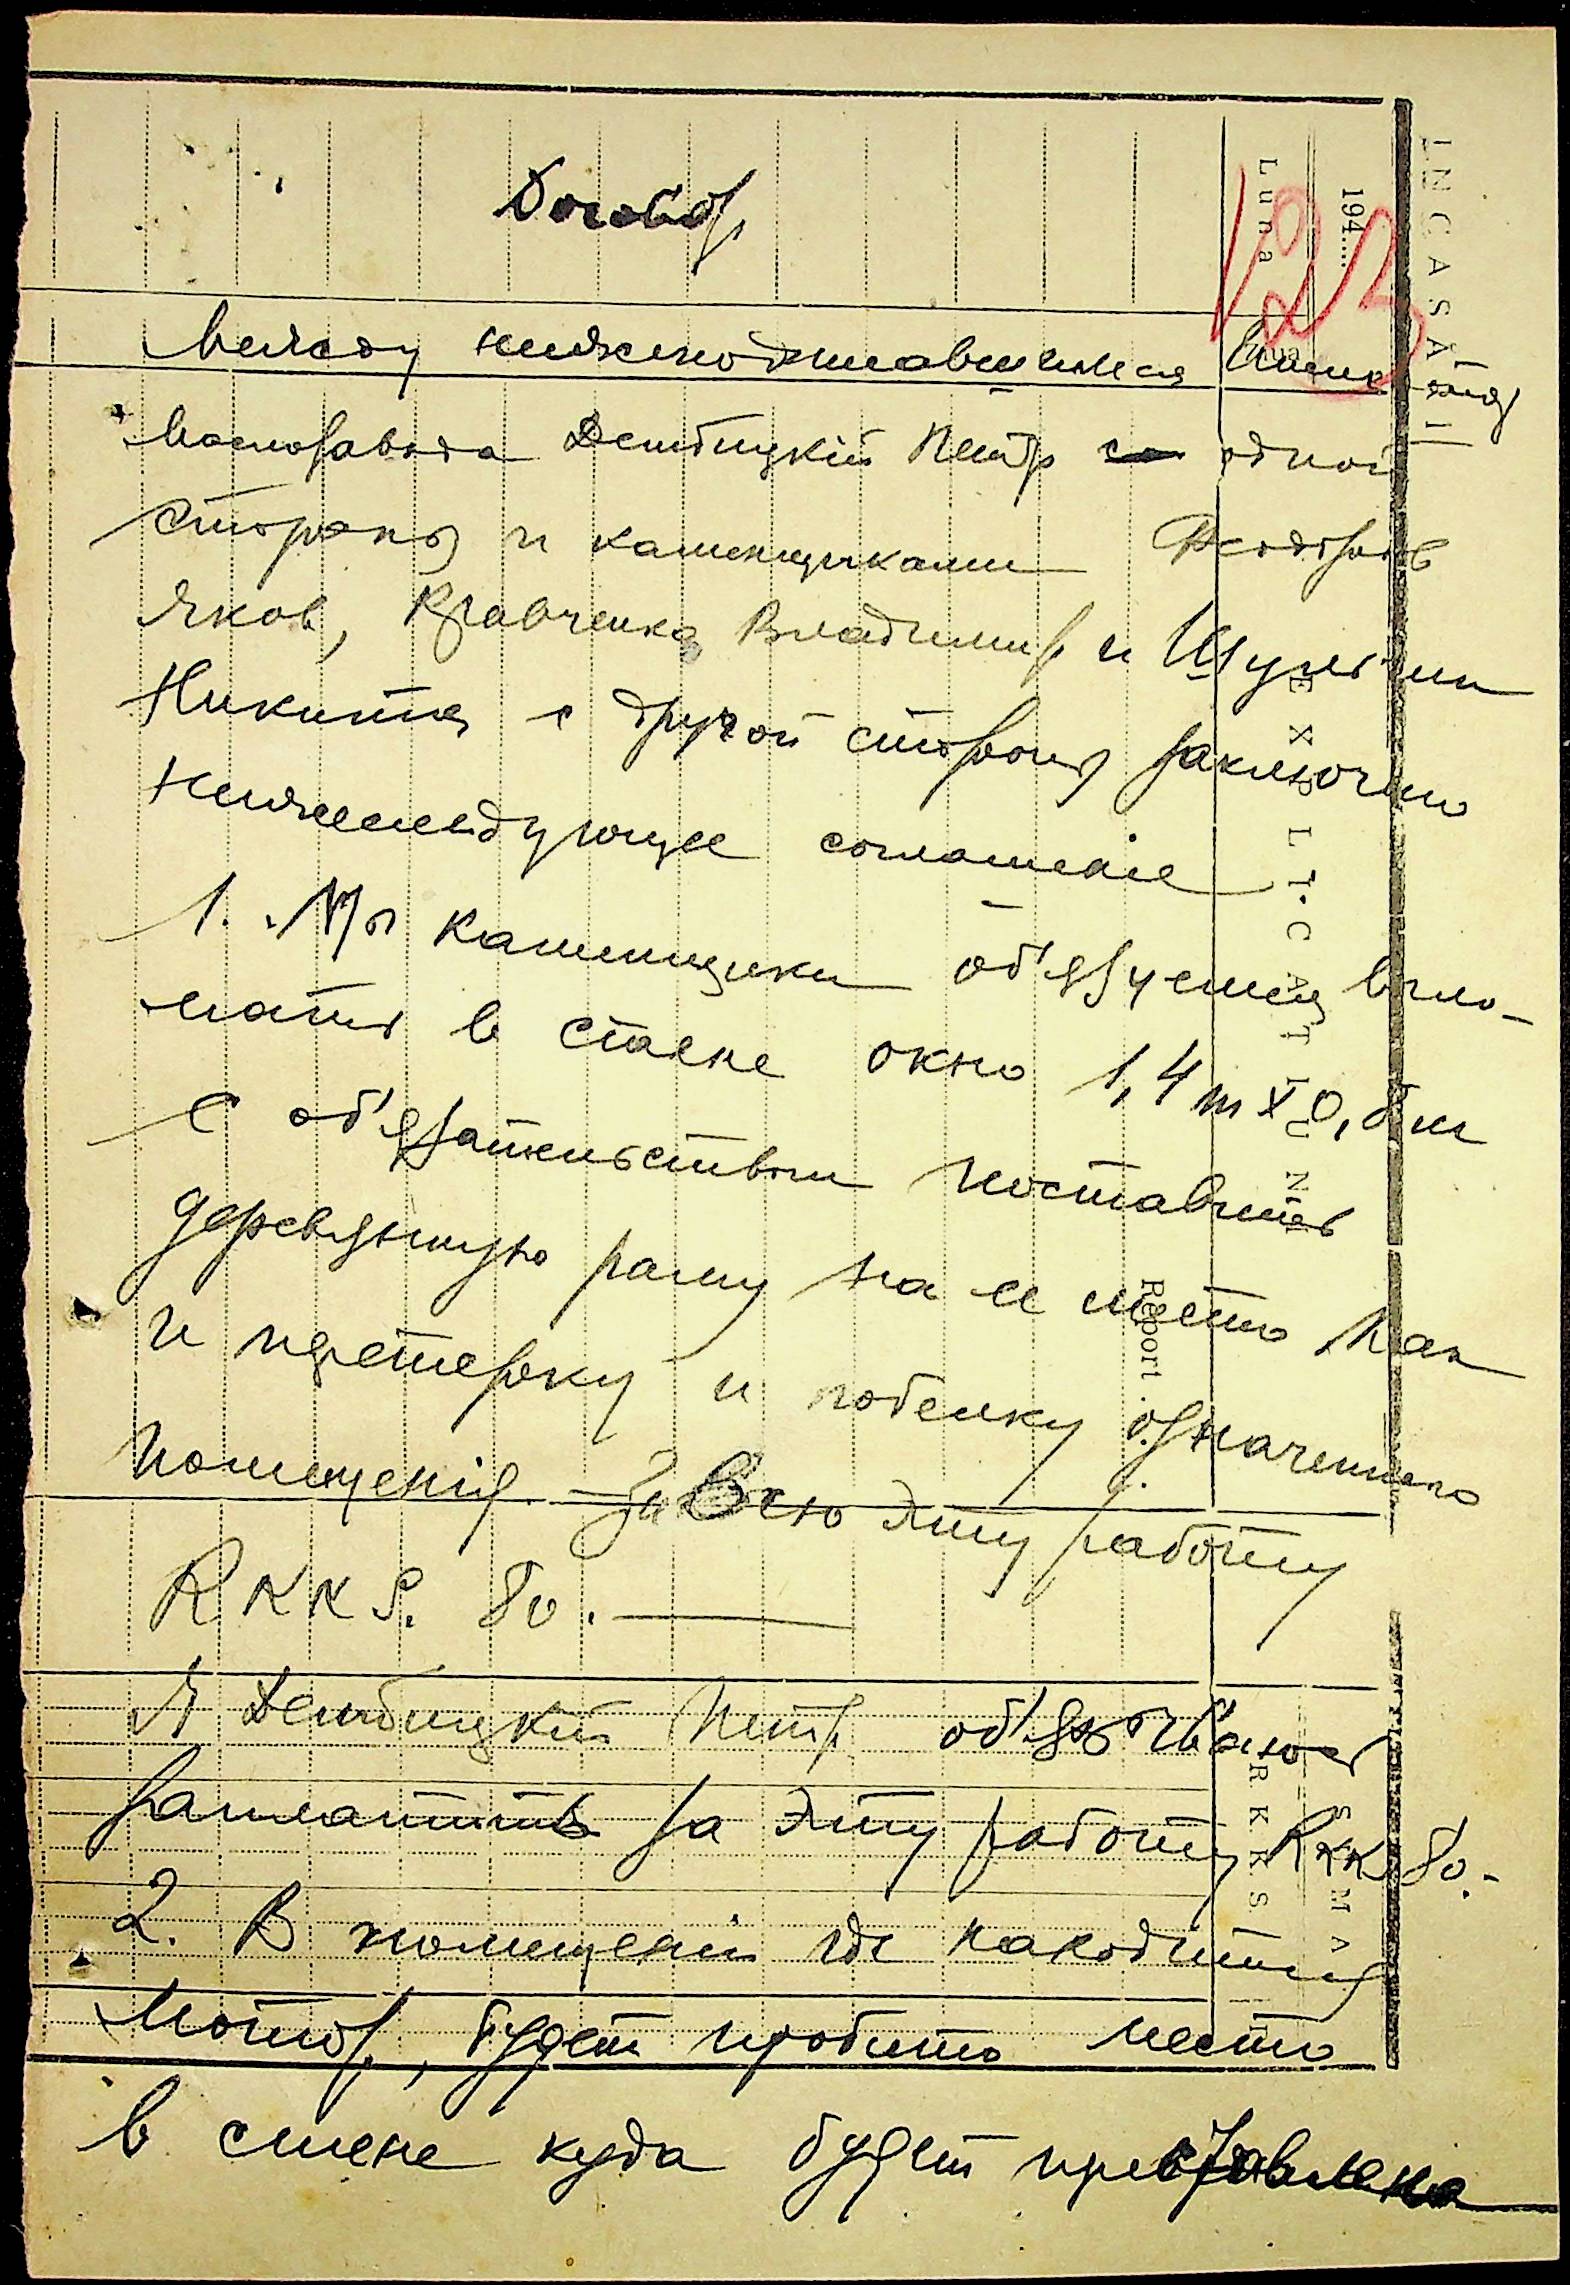 Договор
между нижеподписавшимися
маслозавода Дембицкій Петр с одной
стороны и каменщиками Федоров
Яков, Кравченко Владимир и Шульгин
Никита с другой стороны заключено
нижеследующее соглашение
1. Мы каменщики об'язуемся выло-
мать в стене окно 1,4 m x 0,8 m
с об'язательством поставить
деревянную раму на ее место как
и протерку и побелку означенного
помещенія. За всю эту работу
RKKS. 80.
Я Дембицкій Петр об'язываюсь
заплатить за эту работу RKKS 80.-
2. В помещеніи где находится
мотор, будет пробито место
в стене куда будет приставлена
INCASĂRI
194....
Luna
EXPLICAȚIUNI
Report
RKKS
SUMA
123